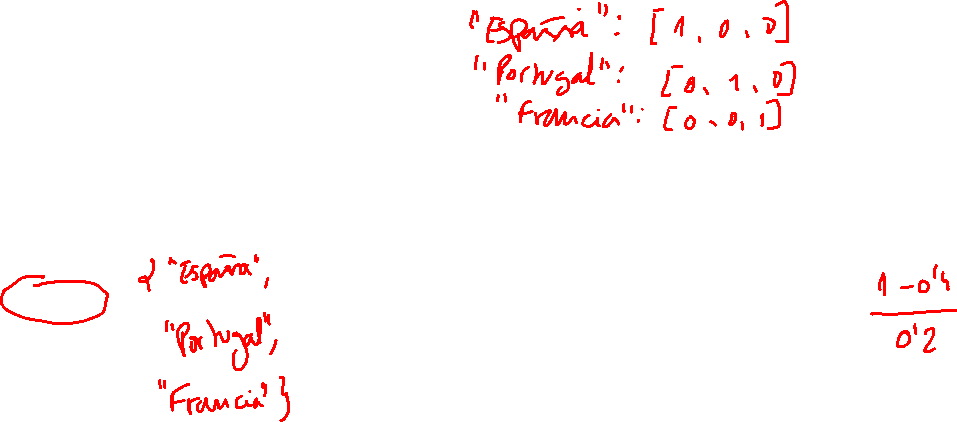 "España": [1, 0, 0]
"Portugal": [0, 1, 0]
"Francia": [0, 0, 1]
{"España",
"Portugal",
"Francia"}
1-0'4
0'2